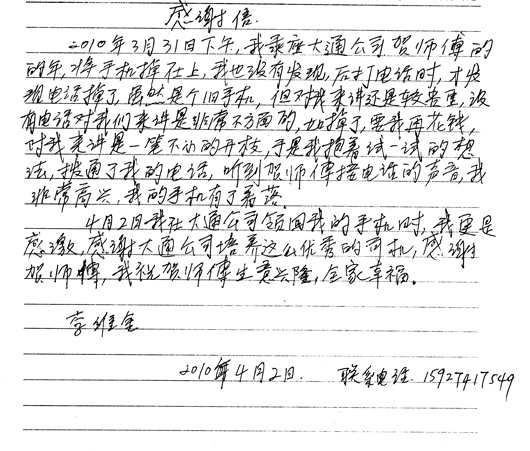 感谢信.
2010年3月31日下午,我乘座大通公司贺师傅的
的车,将手机掉在上,我也没有发现,后打电话时,才发
现电话掉了,虽然是个旧手机,但对我来讲还是较贵重,没
有电话对我们来讲是非常不方面的,如掉了,要我再花钱,
对我来讲是一笔不小的开枝,于是我抱着试一试的想
法,拨通了我的电话,听到贺师傅接电话的声音,我
非常高兴,我的手机有了着落.
4月2日我在大通公司领回我的手机时,我更是
感激,感谢大通公司培养这么优秀的司机,感谢
贺师傅,我祝贺师傅生意兴隆,全家幸福.
李维金
2010年4月2日. 联系电话. 15927417549